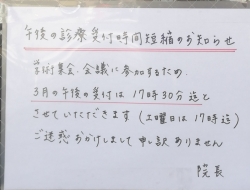 午後の診療受付時間短縮のお知らせ
学術集会、会議に参加するため
3月の午後の受付は17時30分迄と
させていただきます(土曜日は17時迄)
ご迷惑おかけしまして申し訳ありません
院長